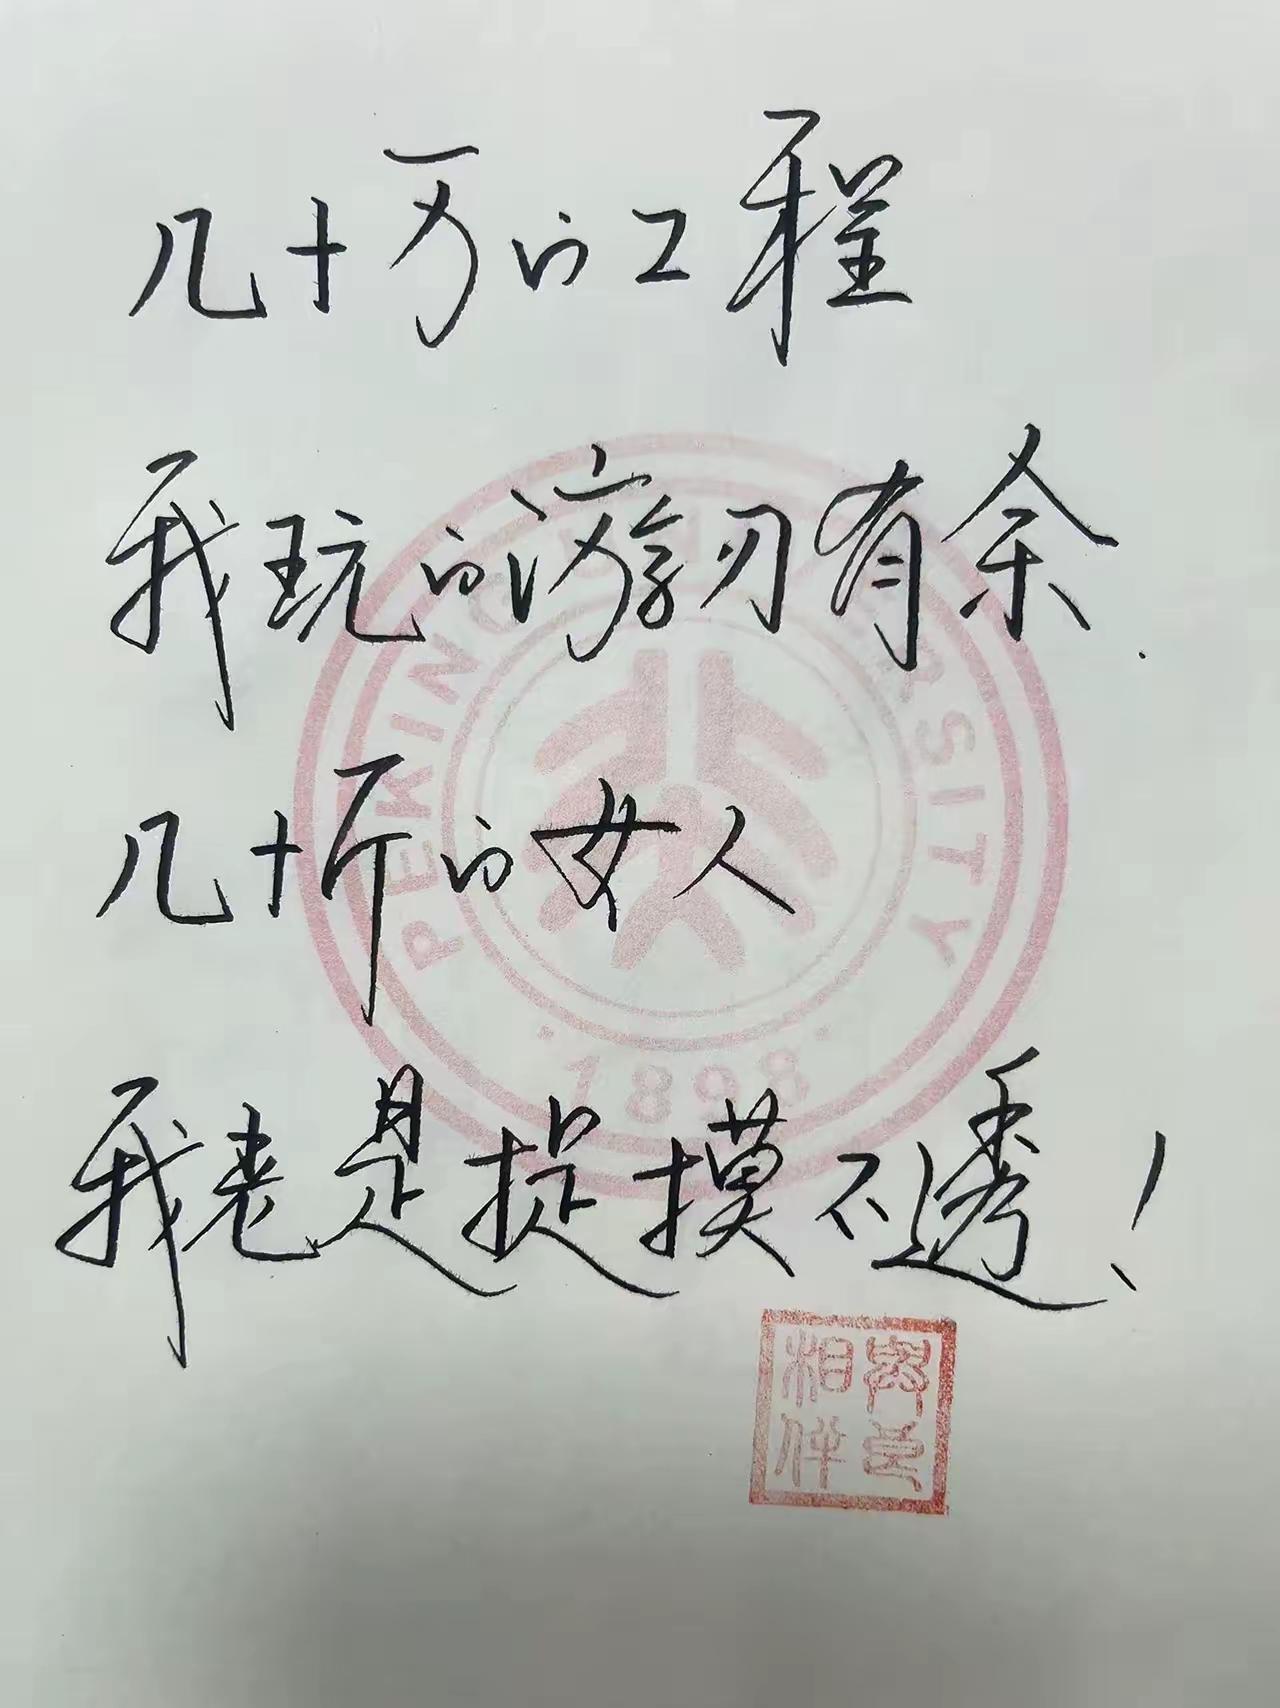 几十万的工程
我玩的游刃有余.
几十斤的女人
我老是捉摸不透!
PEKING UNIVERSITY
1898